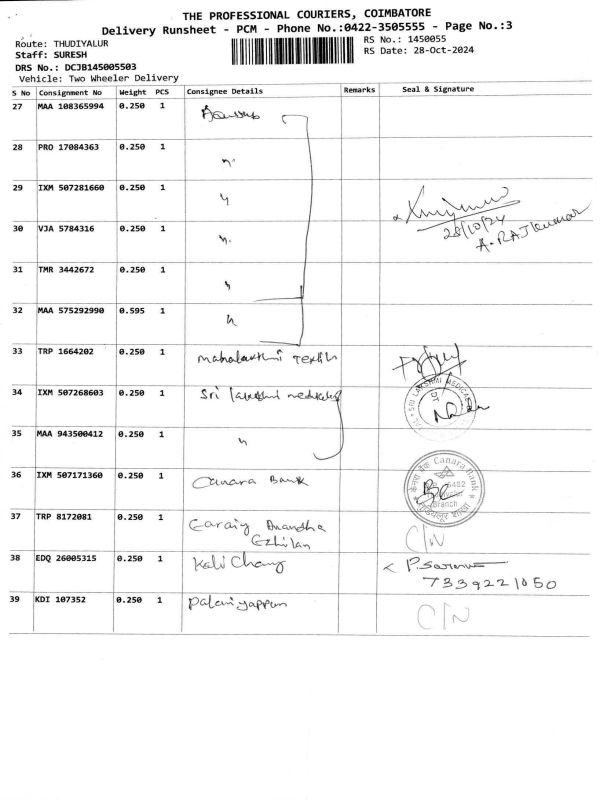 THE PROFESSIONAL COURIERS, COIMBATORE
Delivery Runsheet - PCM - Phone No.:0422-3505555 - Page No.:3
Route: THUDIYALUR
RS No.: 1450055
Staff: SURESH
RS Date: 28-Oct-2024
DRS No.: DCJB145005503
Vehicle: Two Wheeler Delivery
S No Consignment No Weight PCS Consignee Details Remarks Seal & Signature
27 MAA 108365994 0.250 1
28 PRO 17084363 0.250 1 "
29 IXM 507281660 0.250 1 "
28/10/24
A. RAJkumar
30 VJA 5784316 0.250 1 "
31 TMR 3442672 0.250 1 "
32 MAA 575292990 0.595 1 "
33 TRP 1664202 0.250 1 mahalakshmi Textils
34 IXM 507268603 0.250 1 Sri lakshmi medicals
SRI LAKSHMI MEDICALS
35 MAA 943500412 0.250 1 "
36 IXM 507171360 0.250 1 Canara Bank
केनरा बैंक Canara Bank
Branch
37 TRP 8172081 0.250 1 Anandha
Ezhilan
C/N
38 EDQ 26005315 0.250 1 Kali
P. 
7339221050
39 KDI 107352 0.250 1 Palaniyappan
C/N